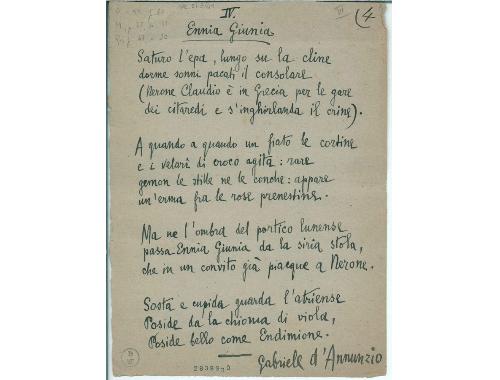 IV.
Ennia Giunia
(4
Saturo l'epa, lungo su la cline
dorme sonni pacati il consolare
(Nerone Claudio è in Grecia per le gare
dei citaredi e s'inghirlanda il crine).
A quando a quando un fiato le cortine
e i velari di croco agita: rare
gemon le stille ne le conche: appare
un'erma fra le rose prenestine.
Ma ne l'ombra del portico lunense
passa Ennia Giunia da la siria stola,
che in un convito già piacque a Nerone.
Sosta e cupida guarda l'atriense
Poside da la chioma di viola,
Poside bello come Endimione.
Gabriele d'Annunzio